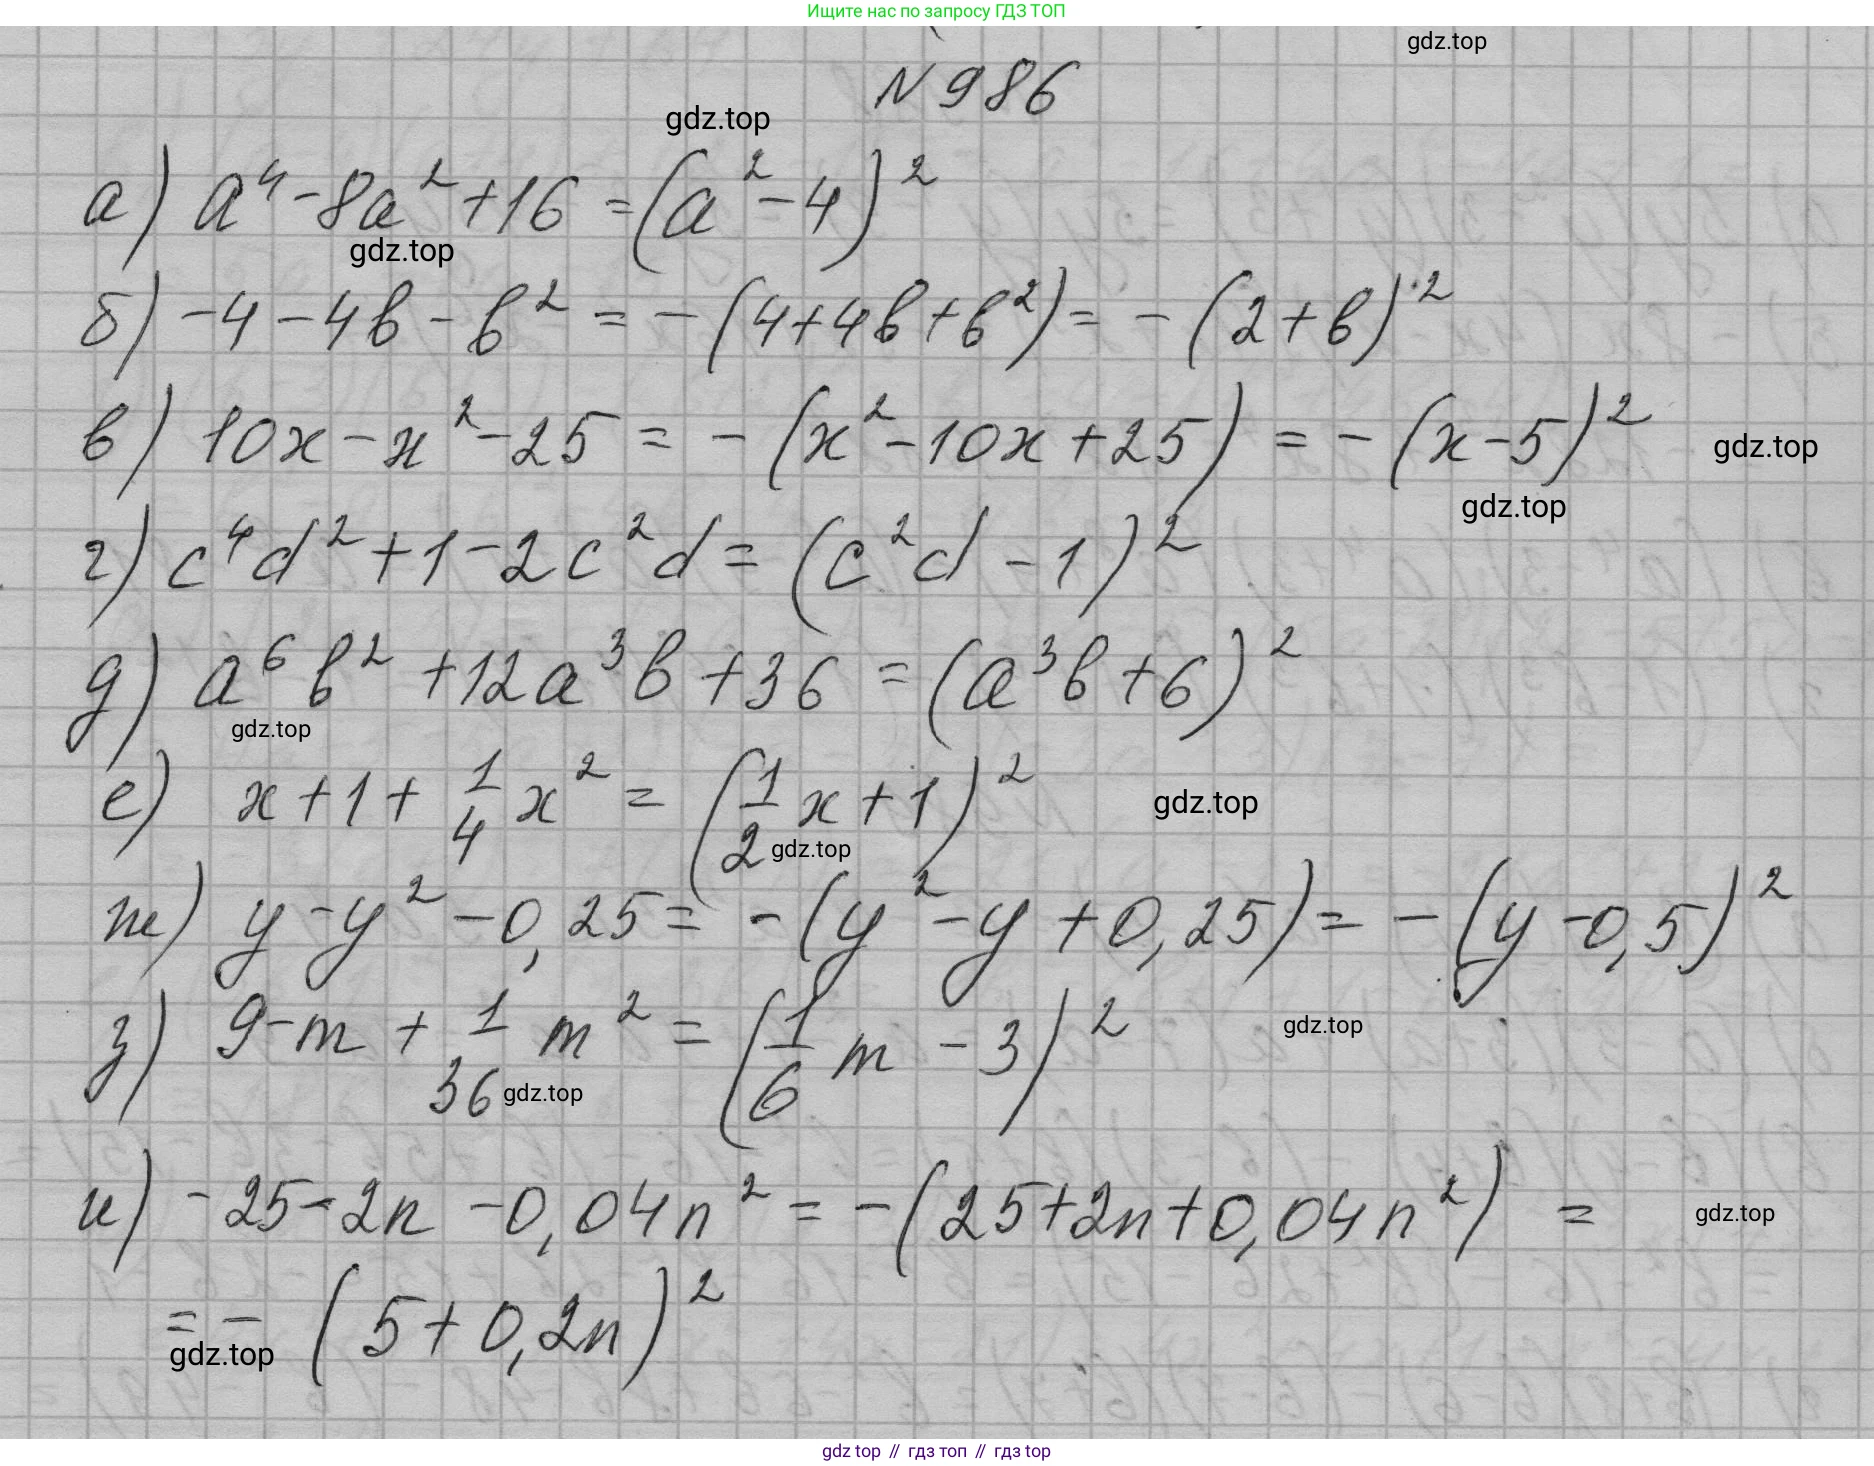 Ищите нас по запросу ГДЗ ТОП
gdz.top
N 986
gdz.top
а) a⁴-8a²+16=(a²-4)²
gdz.top
б) -4-4b-b²=-(4+4b+b²)=-(2+b)²
в) 10x-x²-25=-(x²-10x+25)=-(x-5)²
gdz.top
gdz.top
г) c⁴d²+1-2c²d=(c²d-1)²
д) a⁶b²+12a³b+36=(a³b+6)²
gdz.top
е) x+1+1/4x²=(1/2x+1)²
gdz.top
gdz.top
ж) y-y²-0,25=-(y²-y+0,25)=-(y-0,5)²
з) 9-m+1/36m²=(1/6m-3)²
gdz.top
gdz.top
и) -25-2n-0,04n²=-(25+2n+0,04n²)=
gdz.top
=-(5+0,2n)²
gdz.top
gdz top // гдз топ // гдз top